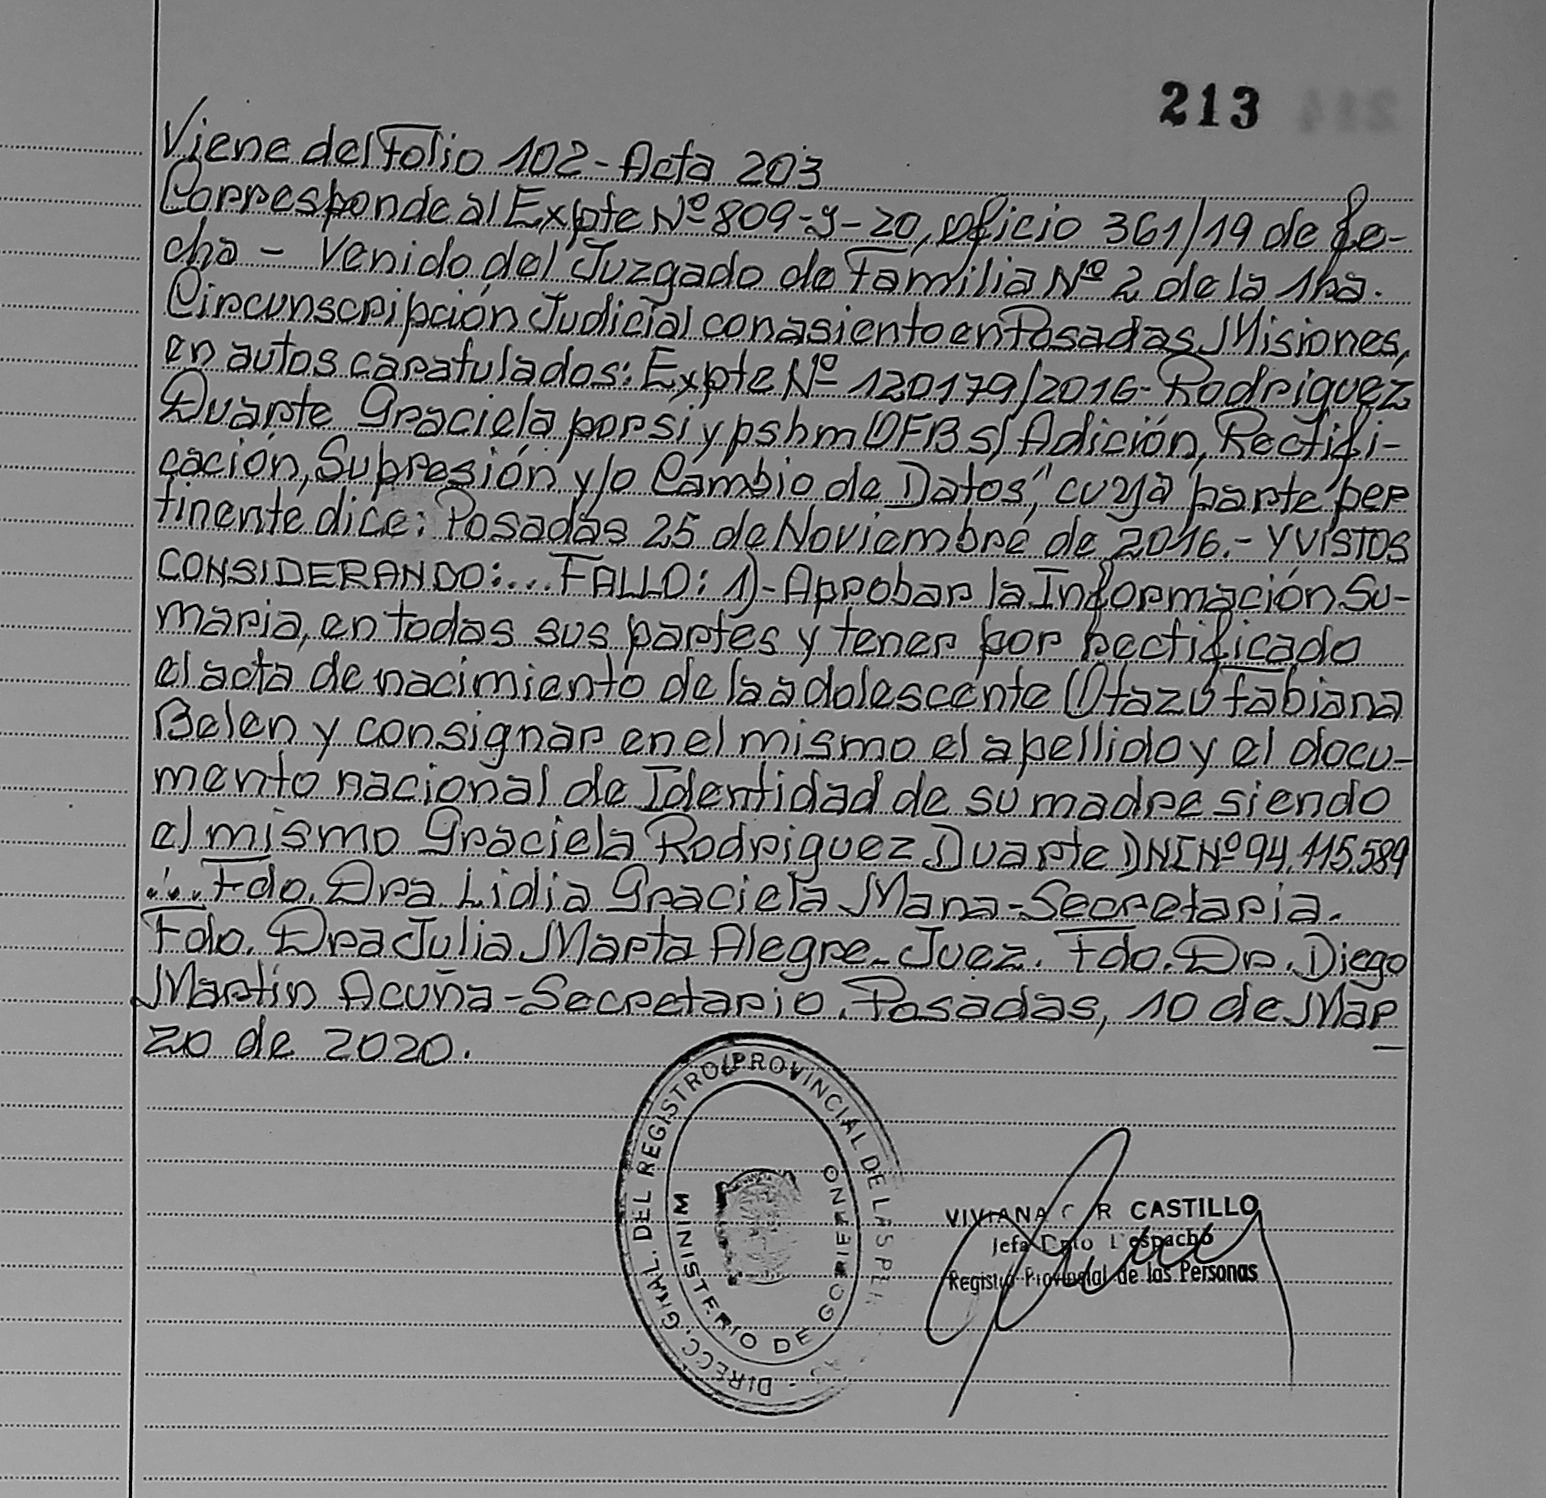 213
Viene del Folio 102 - Acta 203
Corresponde al Expte Nº 809-J-20, oficio 361/19 de fe-
cha - Venido del Juzgado de Familia Nº 2 de la 1ra.
Circunscripción Judicial con asiento en Posadas, Misiones,
en autos caratulados: Expte Nº 120179/2016- Rodriguez
Duarte Graciela por si y pshm OFB s/ Adición, Rectifi-
cación, Supresión y/o Cambio de Datos," cuya parte per
tinente dice: Posadas 25 de Noviembre de 2016.- Y VISTOS
CONSIDERANDO:... FALLO: 1)- Aprobar la Información Su-
maria, en todas sus partes y tener por rectificado
el acta de nacimiento de la adolescente Otazú Fabiana
Belen y consignar en el mismo el apellido y el docu-
mento nacional de Identidad de su madre siendo
el mismo Graciela Rodriguez Duarte DNI Nº 94.115.589
..... Fdo. Dra Lidia Graciela Mana - Secretaria.
Fdo. Dra Julia Marta Alegre - Juez. Fdo. Dr. Diego
Martín Acuña - Secretario. Posadas, 10 de Mar
zo de 2020.
DIRECC. GRAL. DEL REGISTRO PROVINCIAL DE LAS PER
MINISTERIO DE GOBIERNO
VIVIANA C R CASTILLO
Jefa Dpto Despacho
Registro Provincial de las Personas